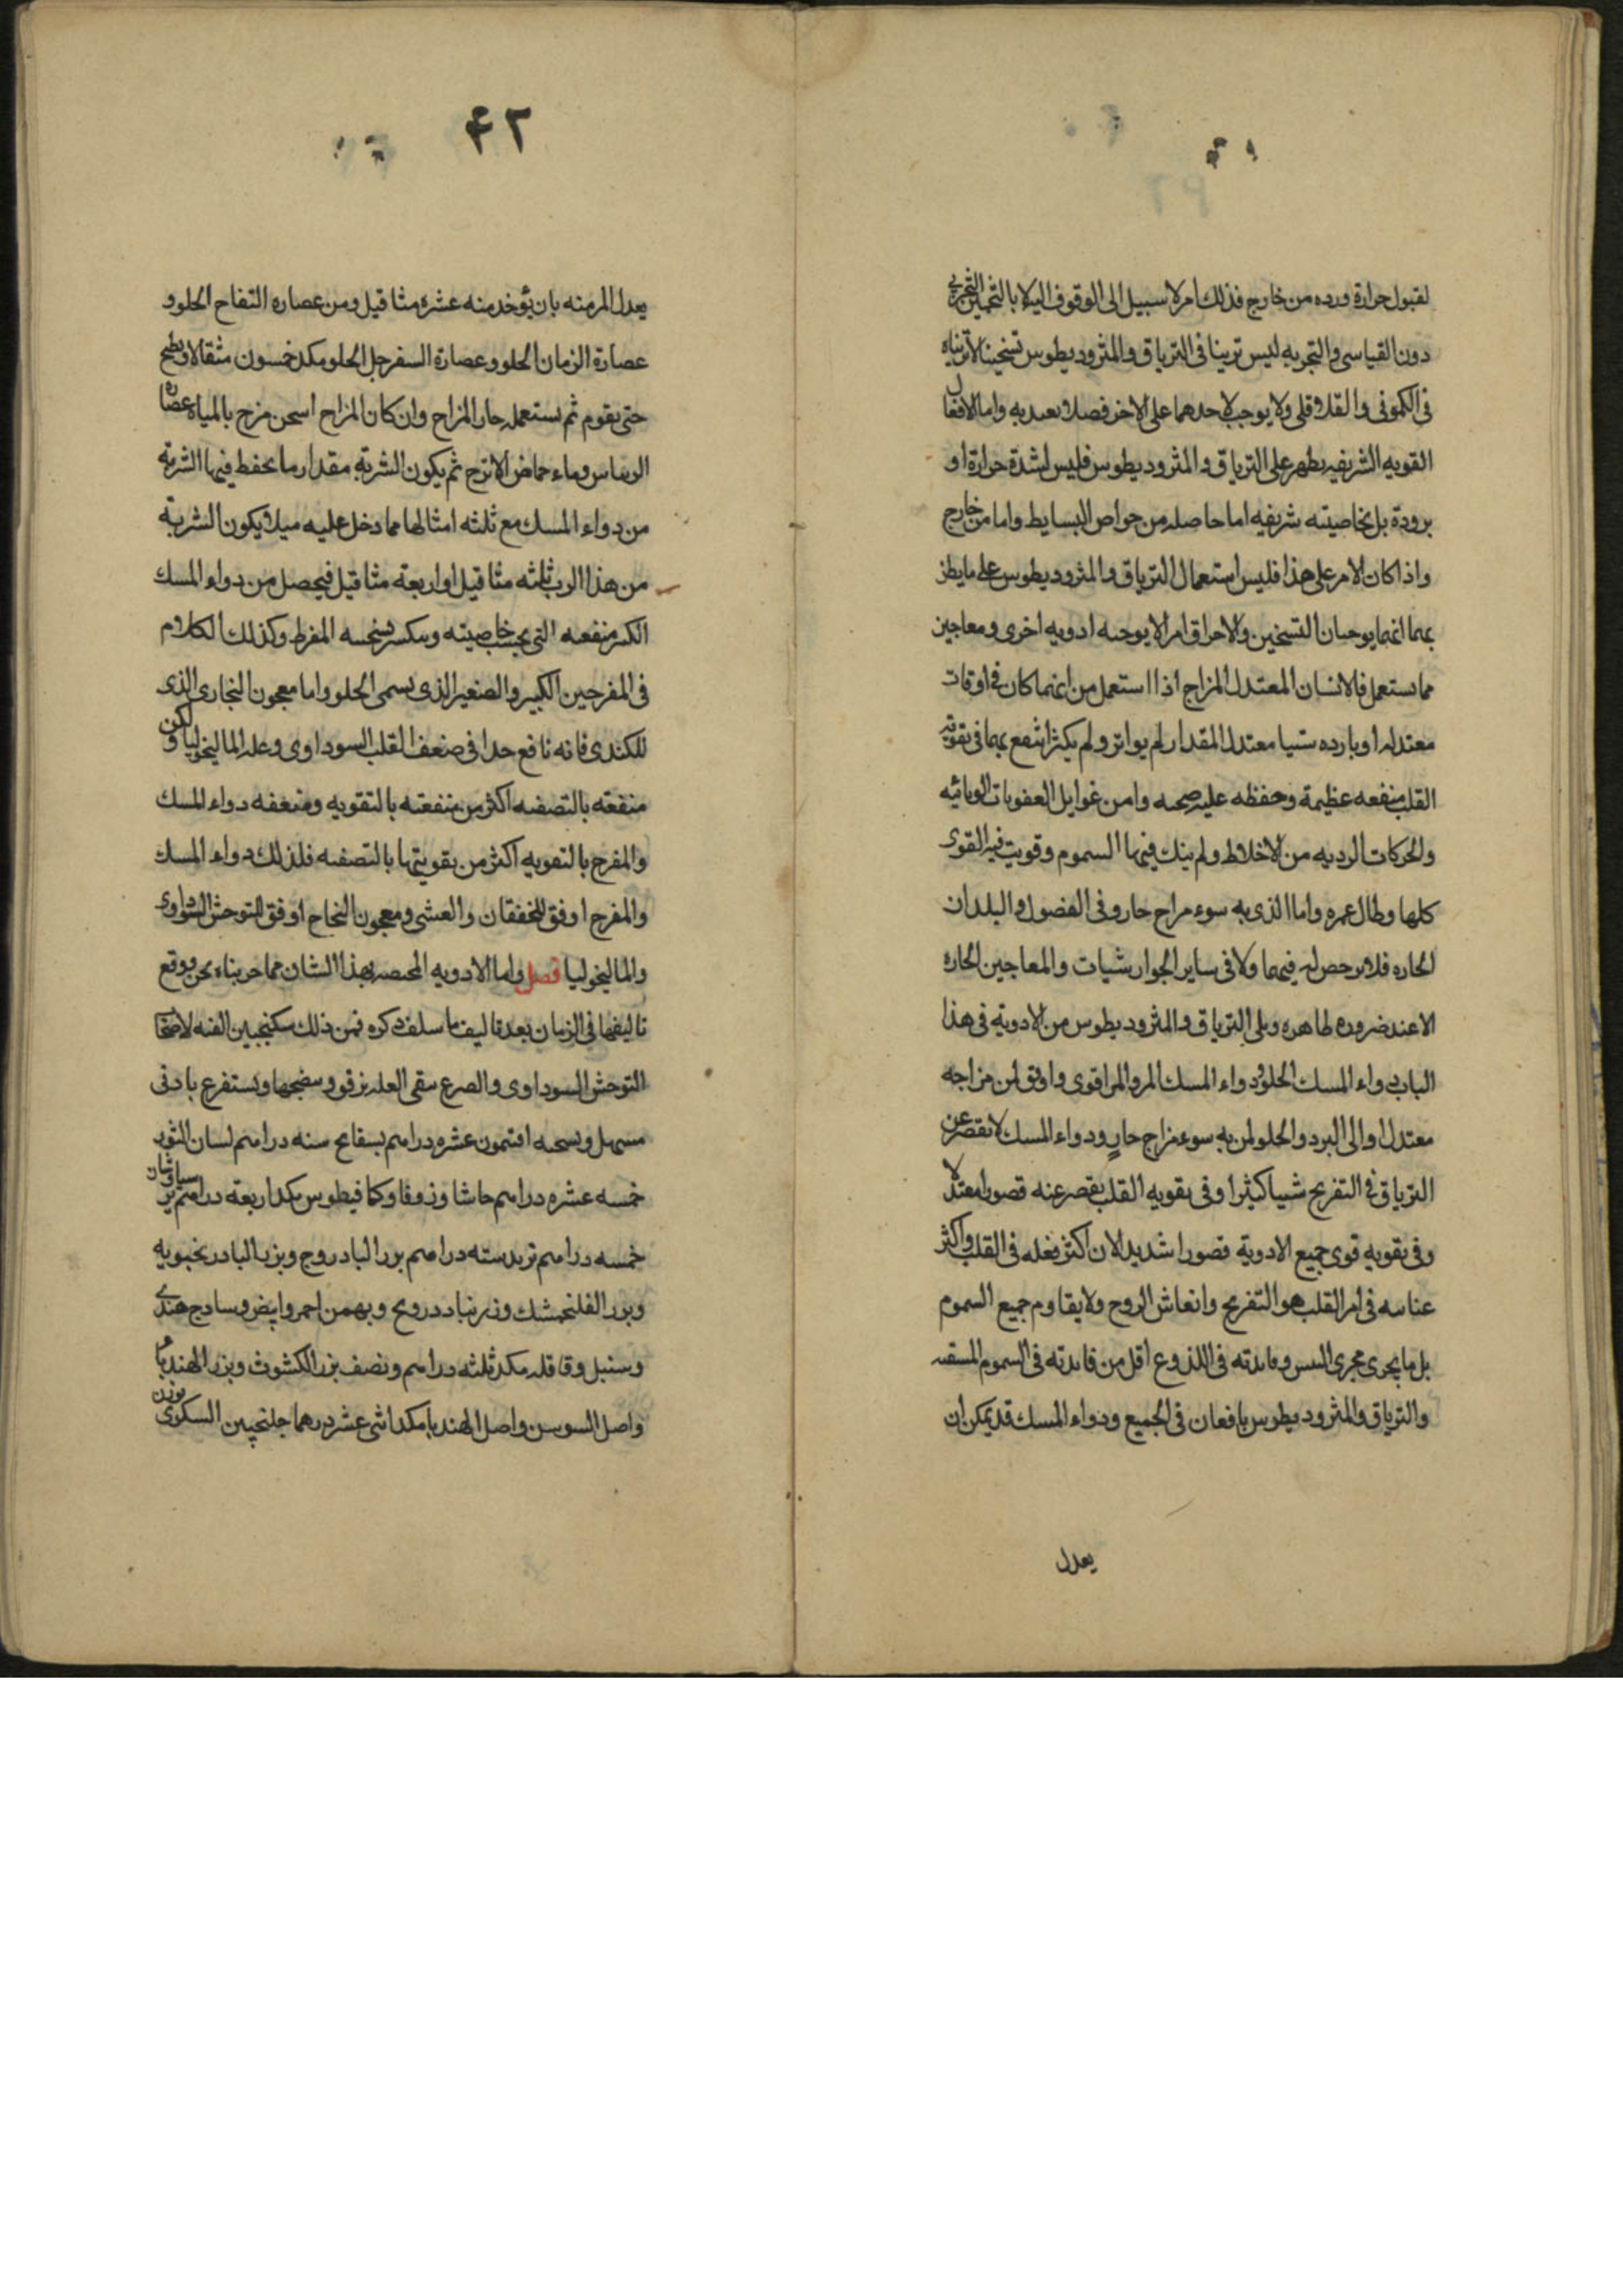 لقبول حرارة ورده من خارج فذلك امر لا سبيل الى الوقوف اليه لا بالتخمين التجربى
دون القياسى والتجربه ليس ترينا فى الترياق والمثروديطوس تسخينا لا تريناه
فى الكمونى والفلافلى ولا يوجب لاحدهما على الاخر فصلا بعديه واما الافعال
القويه الشريفه يظهر على الترياق والمثروديطوس فليس لشدة حرارة او
برودة بل بخاصيته شريفه اما حاصله من جواهر البسايط واما من خارج
واذا كان الامر على هذا فليس استعمال الترياق والمثروديطوس على ما يظن
بهما انهما يوجبان التسخين والاحراق امرا لا يوجبه ادويه اخرى ومعاجين
مما يستعمل فالانسان المعتدل المزاج اذا استعمل من ايهما كان فى اوقات
معتدله او بارده شيا معتدل المقدار لم يواتر ولم يكثر انتفع بهما فى تقوية
القلب منفعه عظيمة وحفظه عليه صحه وامن غوايل العفونات الوبائيه
والحركات الرديه من الاخلاط ولم ينك فيها السموم وقويت فيه القوى
كلها وطال عمره واما الذى به سوء مزاج حار وفى الفصول والبلدان
الحاره فلا رخص له فيهما ولا فى ساير الجوارشيات والمعاجين الحاره
الا عند ضروره طاهره ويلى الترياق والمثروديطوس من الادوية فى هذا
الباب دواء المسك الحلو ودواء المسك المر والمر اقوى واوفق لمن مزاجه
معتدل او الى البرد والحلو لمن به سوء مزاج حار ودواء المسك لا يقصر عن
الترياق فى التفريح شيا كثيرا وفى تقويه القلب يقصر عنه قصورا معتدلا
وفى تقويه قوى جميع الادوية قصورا شديدا لان اكثر فعله فى القلب واكثر
عنايته فى امر القلب هو التفريح وانعاش الروح ولا يقاوم جميع السموم
بل ما يجرى مجرى البيش وفايدته فى اللذوع اقل من فايدته فى السموم المسقيه
والترياق والمثروديطوس نافعان فى الجميع ودواء المسك قد يمكن ان
يعدل
۴۲
يعدل المر منه بان يؤخد منه عشره مثاقيل ومن عصاره التفاح الحلو و
عصارة الرمان الحلو وعصارة السفرجل الحلو مكد خمسون مثقالا ويطبخ
حتى يقوم ثم يستعمله حار المزاج وان كان المزاح اسخن مزج بالمياه عصاره
الريباس وماء حماض الاترج ثم يكون الشربة مقدار ما يحفط فيها الشربة
من دواء المسك مع ثلثه امثالها مما دخل عليه ميلا يكون الشربة
من هذا الرب ثلثه مثاقيل او اربعة مثاقيل فيحصل من دواء المسك
اكثر منفعه التى بحسب خاصيته وينكسر تسخينه المفرط وكذلك الكلام
فى المفرحين الكبير والصغير الذى يسمى الحلو واما معجون النجارى الذى
للكندى فانه نافع جدا فى ضعف القلب السوداوى وعله الماليخوليا ولكن
منفعته بالتصفيه اكثر من منفعته بالتقويه ومنفعه دواء المسك
والمفرح بالتقويه اكثر من تقويتها بالتصفيه فلذلك دواء المسك
والمفرح اوفق للخفقان والغشى ومعجون النجاح اوفق للتوحش السوداوى
والماليخوليا فصل واما الادويه المختصه بهذا الشان مما جربناه نحن ووقع
تاليفها فى الزمان بعد تاليف ما سلف ذكره فمن ذلك سكنجبين الفته لاصحاب
التوحش السوداوى والصرع سقى العله برفق وينضجها ويستفرغ بادنى
مسهل ونسخته افتيمون عشره دراهم بسفايج سته دراهم لسان الثور
خمسه عشره دراهم حاشا وزوفا وكمافيطوس مكد اربعة دراهم برسياوشان
خمسه دراهم تربد سته دراهم بزر البادروج وبزر البادرنجبويه
وبزر الفلنجمشك وزرنباد درونج وبهمن احمر وابيض وسادج هندى
وسنبل وقاقله مكد ثلثه دراهم ونصف بزر الكشوث وبزر الهندباء
واصل السوسن واصل الهندبا مكد اثنى عشر درهما جلنجبين السكرى بوزن